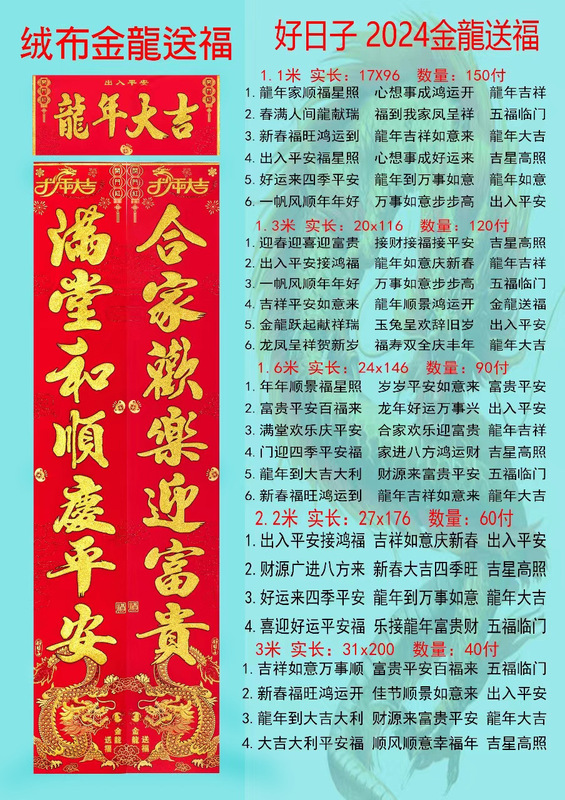 绒布金龍送福
出入平安
龍年大吉
合家歡樂迎富貴
滿堂和順慶平安
金龍送福
金龍送福
好日子 2024金龍送福
1.1米 实长：17X96 数量：150付
1. 龍年家顺福星照 心想事成鸿运开 龍年吉祥
2. 春满人间龍献瑞 福到我家凤呈祥 五福临门
3. 新春福旺鸿运到 龍年吉祥如意来 龍年大吉
4. 出入平安福星照 心想事成好运来 吉星高照
5. 好运来四季平安 龍年到万事如意 龍年如意
6. 一帆风顺年年好 万事如意步步高 出入平安
1.3米 实长：20x116 数量：120付
1. 迎春迎喜迎富贵 接财接福接平安 吉星高照
2. 出入平安接鸿福 龍年如意庆新春 龍年吉祥
3. 一帆风顺年年好 万事如意步步高 五福临门
4. 吉祥平安如意来 龍年顺景鸿运开 金龍送福
5. 金龍跃起献祥瑞 玉兔呈欢辞旧岁 出入平安
6. 龙凤呈祥贺新岁 福寿双全庆丰年 龍年大吉
1.6米 实长：24x146 数量：90付
1. 年年顺景福星照 岁岁平安如意来 富贵平安
2. 富贵平安百福来 龙年好运万事兴 出入平安
3. 满堂欢乐庆平安 合家欢乐迎富贵 龍年吉祥
4. 门迎四季平安福 家进八方鸿运财 吉星高照
5. 龍年到大吉大利 财源来富贵平安 五福临门
6. 新春福旺鸿运到 龍年吉祥如意来 龍年大吉
2.2米 实长：27x176 数量：60付
1. 出入平安接鸿福 吉祥如意庆新春 出入平安
2. 财源广进八方来 新春大吉四季旺 吉星高照
3. 好运来四季平安 龍年到万事如意 龍年大吉
4. 喜迎好运平安福 乐接龍年富贵财 五福临门
3米 实长：31x200 数量：40付
1. 吉祥如意万事顺 富贵平安百福来 五福临门
2. 新春福旺鸿运开 佳节顺景如意来 出入平安
3. 龍年到大吉大利 财源来富贵平安 龍年大吉
4. 大吉大利平安福 顺风顺意幸福年 吉星高照